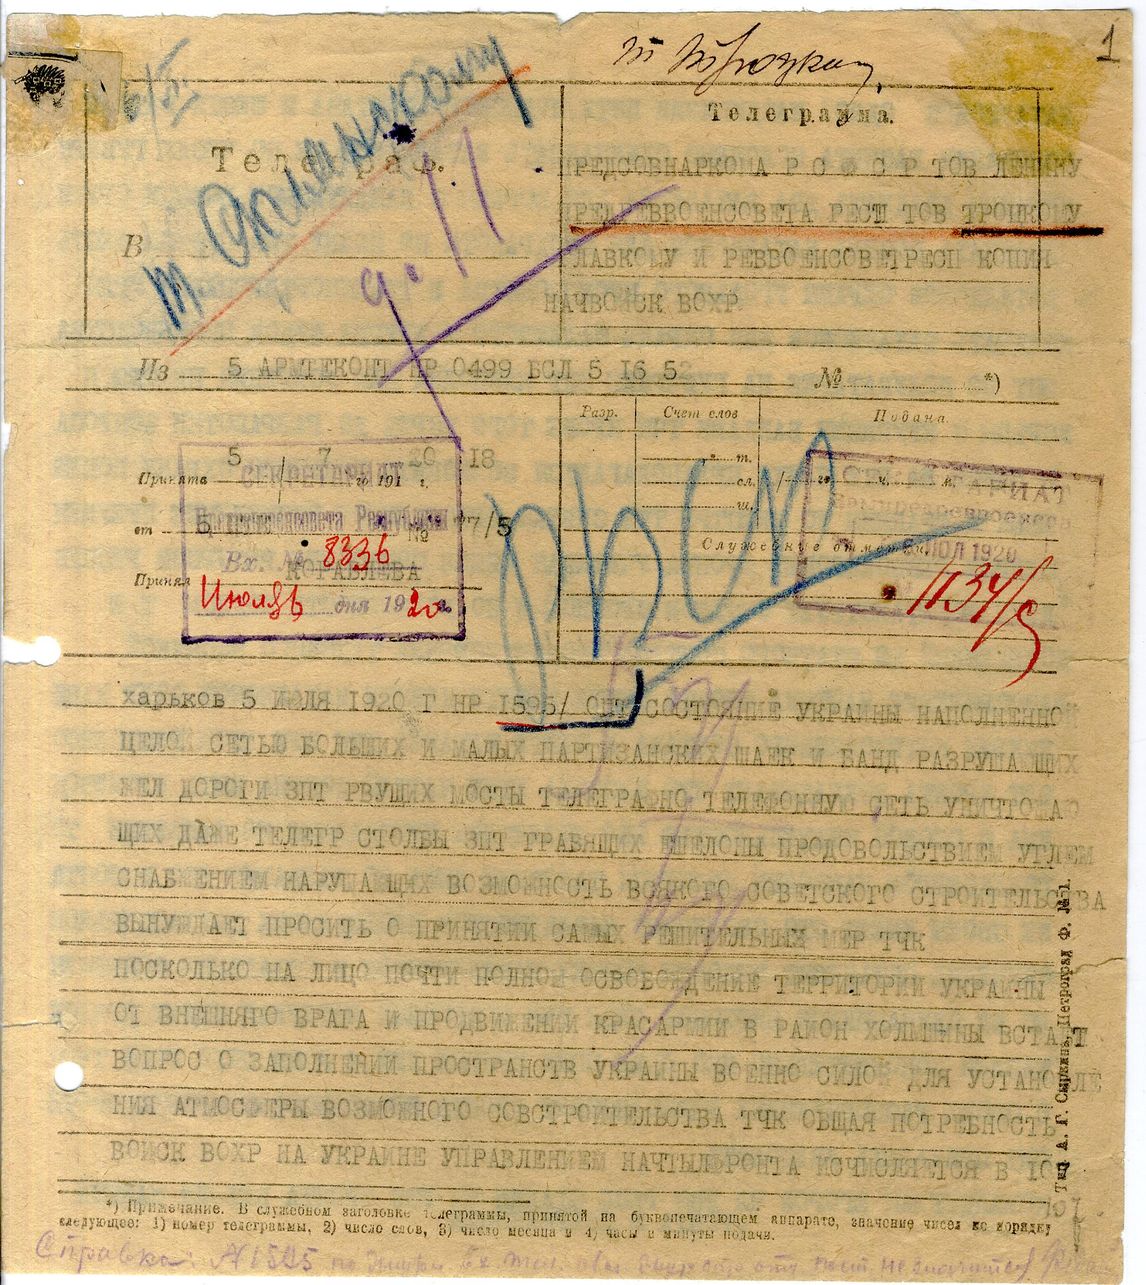 1
т Троцкому
т. Склянскому
Телеграф.
Телеграмма.
ПРЕДСОВНАРКОМА Р С Ф С Р ТОВ ЛЕНИНУ
ПРЕДРЕВВОЕНСОВЕТА РЕСП ТОВ ТРОЦКОМУ
ГЛАВКОМУ И РЕВВОЕНСОВЕТРЕСП КОПИЯ
НАЧВОЙСК ВОХР
В
Из 5 АРМТЕКОНТ НР 0499 БСЛ 5 16 52 № *)
Разр. Счет слов Подана
Принята 5 / 7 20 18 го 191 г.
СЕКРЕТАРИАТ
Предреввоенсовета Республики
от 5 № 77/5
Вх. № 8336
Принял КОРАБЛЕВА
Июль дня 1920 г.
т.
сл.
ш.
го ч. м.
СЕКРЕТАРИАТ
Служебные отметки:
ИЮЛ 1920
1134/с
харьков 5 ИЮЛЯ 1920 Г НР 1595/ ОПТ СОСТОЯНИЕ УКРАИНЫ НАПОЛНЕННОЙ
ЦЕЛОЙ СЕТЬЮ БОЛЬШИХ И МАЛЫХ ПАРТИЗАНСКИХ ШАЕК И БАНД РАЗРУШАЮЩИХ
ЖЕЛ ДОРОГИ ЗПТ РВУЩИХ МОСТЫ ТЕЛЕГРАФНО ТЕЛЕФОННУЮ СЕТЬ УНИЧТОЖАЮ
ЩИХ ДАЖЕ ТЕЛЕГР СТОЛБЫ ЗПТ ГРАБЯЩИХ ЕШЕЛОНЫ ПРОДОВОЛЬСТВИЕМ УГЛЕМ
СНАБЖЕНИЕМ НАРУШАЮЩИХ ВОЗМОЖНОСТЬ ВСЯКОГО СОВЕТСКОГО СТРОИТЕЛЬСТВА
ВЫНУЖДАЕТ ПРОСИТЬ О ПРИНЯТИИ САМЫХ РЕШИТЕЛЬНЫХ МЕР ТЧК
ПОСКОЛЬКО НА ЛИЦО ПОЧТИ ПОЛНОЕ ОСВОБОЖДЕНИЕ ТЕРРИТОРИИ УКРАИНЫ
ОТ ВНЕШНЯГО ВРАГА И ПРОДВИЖЕНИИ КРАСАРМИИ В РАЙОН ХОЛМЩИНЫ ВСТАЕТ
ВОПРОС О ЗАПОЛНЕНИИ ПРОСТРАНСТВ УКРАИНЫ ВОЕННО СИЛОЙ ДЛЯ УСТАНОВЛЕ
НИЯ АТМОСФЕРЫ ВОЗМОЖНОГО СОВСТРОИТЕЛЬСТВА ТЧК ОБЩАЯ ПОТРЕБНОСТЬ
ВОЙСК ВОХР НА УКРАИНЕ УПРАВЛЕНИЕМ НАЧТЫЛФРОНТА ИСЧИСЛЯЕТСЯ В 10
Тип. А. Г. Сыркина, Петроград Ф. № 1.
*) Примечание. В служебном заголовке телеграммы, принятой на буквопечатающем аппарате, значение чисел по порядку
следующее: 1) номер телеграммы, 2) число слов, 3) число месяца и 4) часы и минуты подачи.
Справка: № 1595